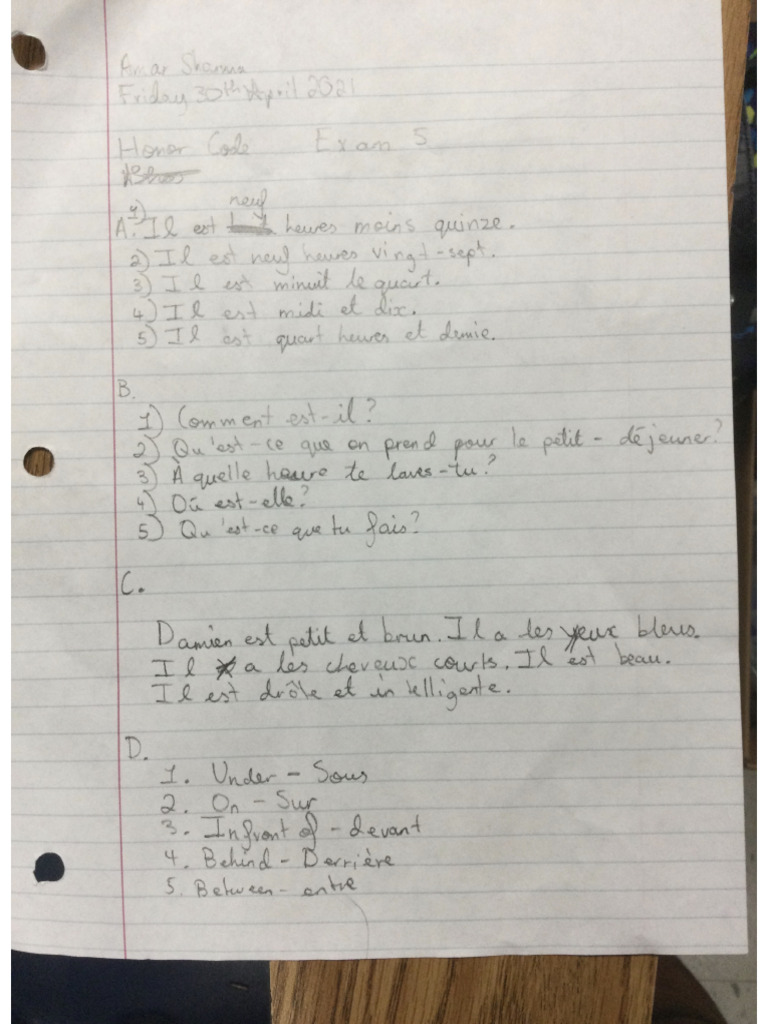 Amar Sharma
Friday 30th April 2021
Honor Code Exam 5
A. 1) Il est neuf heures moins quinze.
2) Il est neuf heures vingt-sept.
3) Il est minuit le quart.
4) Il est midi et dix.
5) Il est quart heures et demie.
B.
1) Comment est-il?
2) Qu'est-ce que on prend pour le petit-déjeuner?
3) À quelle heure te laves-tu?
4) Où est-elle?
5) Qu'est-ce que tu fais?
C.
Damien est petit et brun. Il a les yeux bleus.
Il a les cheveux courts. Il est beau.
Il est drôle et intelligente.
D.
1. Under - Sous
2. On - Sur
3. Infront of - devant
4. Behind - Derrière
5. Between - entre